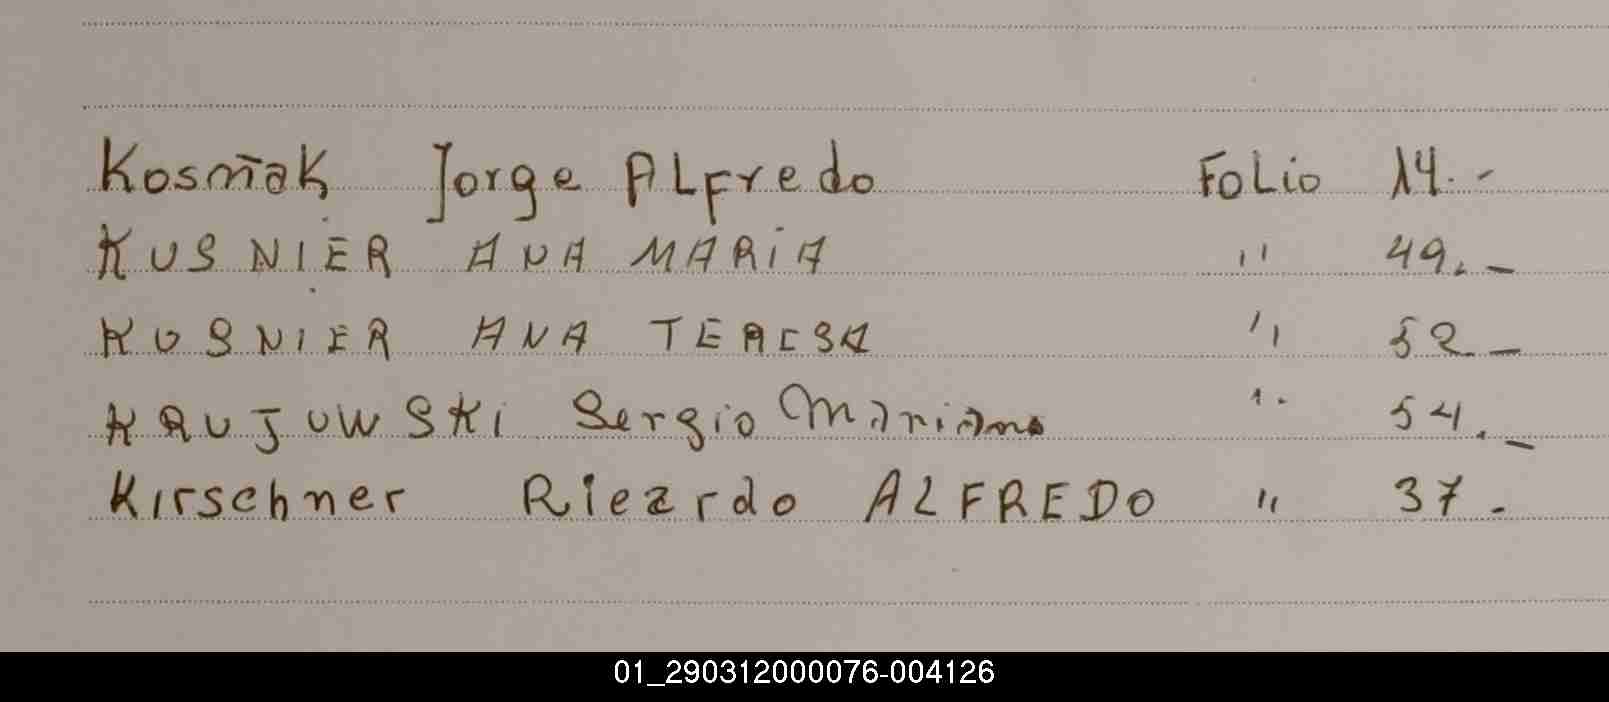 Kosmak Jorge ALFredo FoLio 14.-
KUSNIER ANA MARiA " 49.-
KUSNIER ANA TERESA " 52.-
KRUJOWSKi Sergio Mariano " 54.-
Kirschner Ricardo ALFREDO " 37.-
01_290312000076-004126